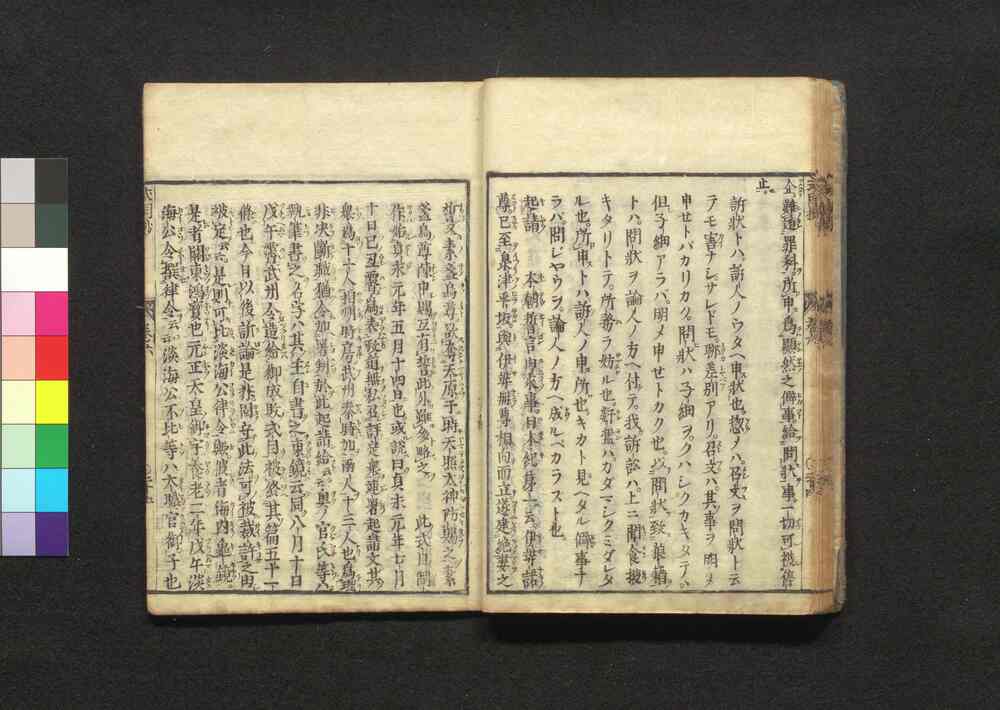 企難遁罪科所申爲顯然之僻事給問狀事一切可被停
止
訴狀トハ訴人ノウタヘ申狀也惣ノハ召文ヲ問狀ト云
テモ害ナシサレドモ聊差別アリ召文ハ其事ヲ明メ
申セトバカリカク問狀ハ子細ヲクハシクカキタテ
但子細アラバ明メ申セトカク也以問狀致狼藉
トハ問狀ヲ論人ノ方ヘ付テ我訴訟ハ上ニ聞食披
キタリトテ所務ヲ妨ル也奸濫ハカダマシクミダレタ
ル也所申トハ訴人ノ申所也キカト見ヘタル僻事ナ
ラバ問シヤウヲ論人ノ方ヘ成ルベカラスト也
起請 本朝誓言由來事日本紀第一云伊弉諾
尊已至泉津平坂與伊弉冊尊相向而立遂建絶妻之
誓又素盞烏尊昇天原于時天照太神防
盞烏尊陳申賜互有誓此外雖多略之 此式目間
作始貞永元年五月十四日也或説曰貞永元年七月
十日已丑爲表政道無私召評定衆連署起請文其
衆爲十一人相州時房武州泰時加兩人十三人也爲理
非決斷職猶令加署判於此起請給云云奥ノ官氏等ハ
執筆書之名字ハ其主自書之東鏡云同八月十日
戊午霽武州令造給御成敗式目被終其篇五十一
條也今日以後訴論是非固守此法可被裁許之由
被定云云是則可比淡海公律令歟彼者海内龜鏡
是者關東鴻寳也元正天皇御宇養老二年戊午淡
海公令撰律令云云淡海公不比等ハ大職官御子也